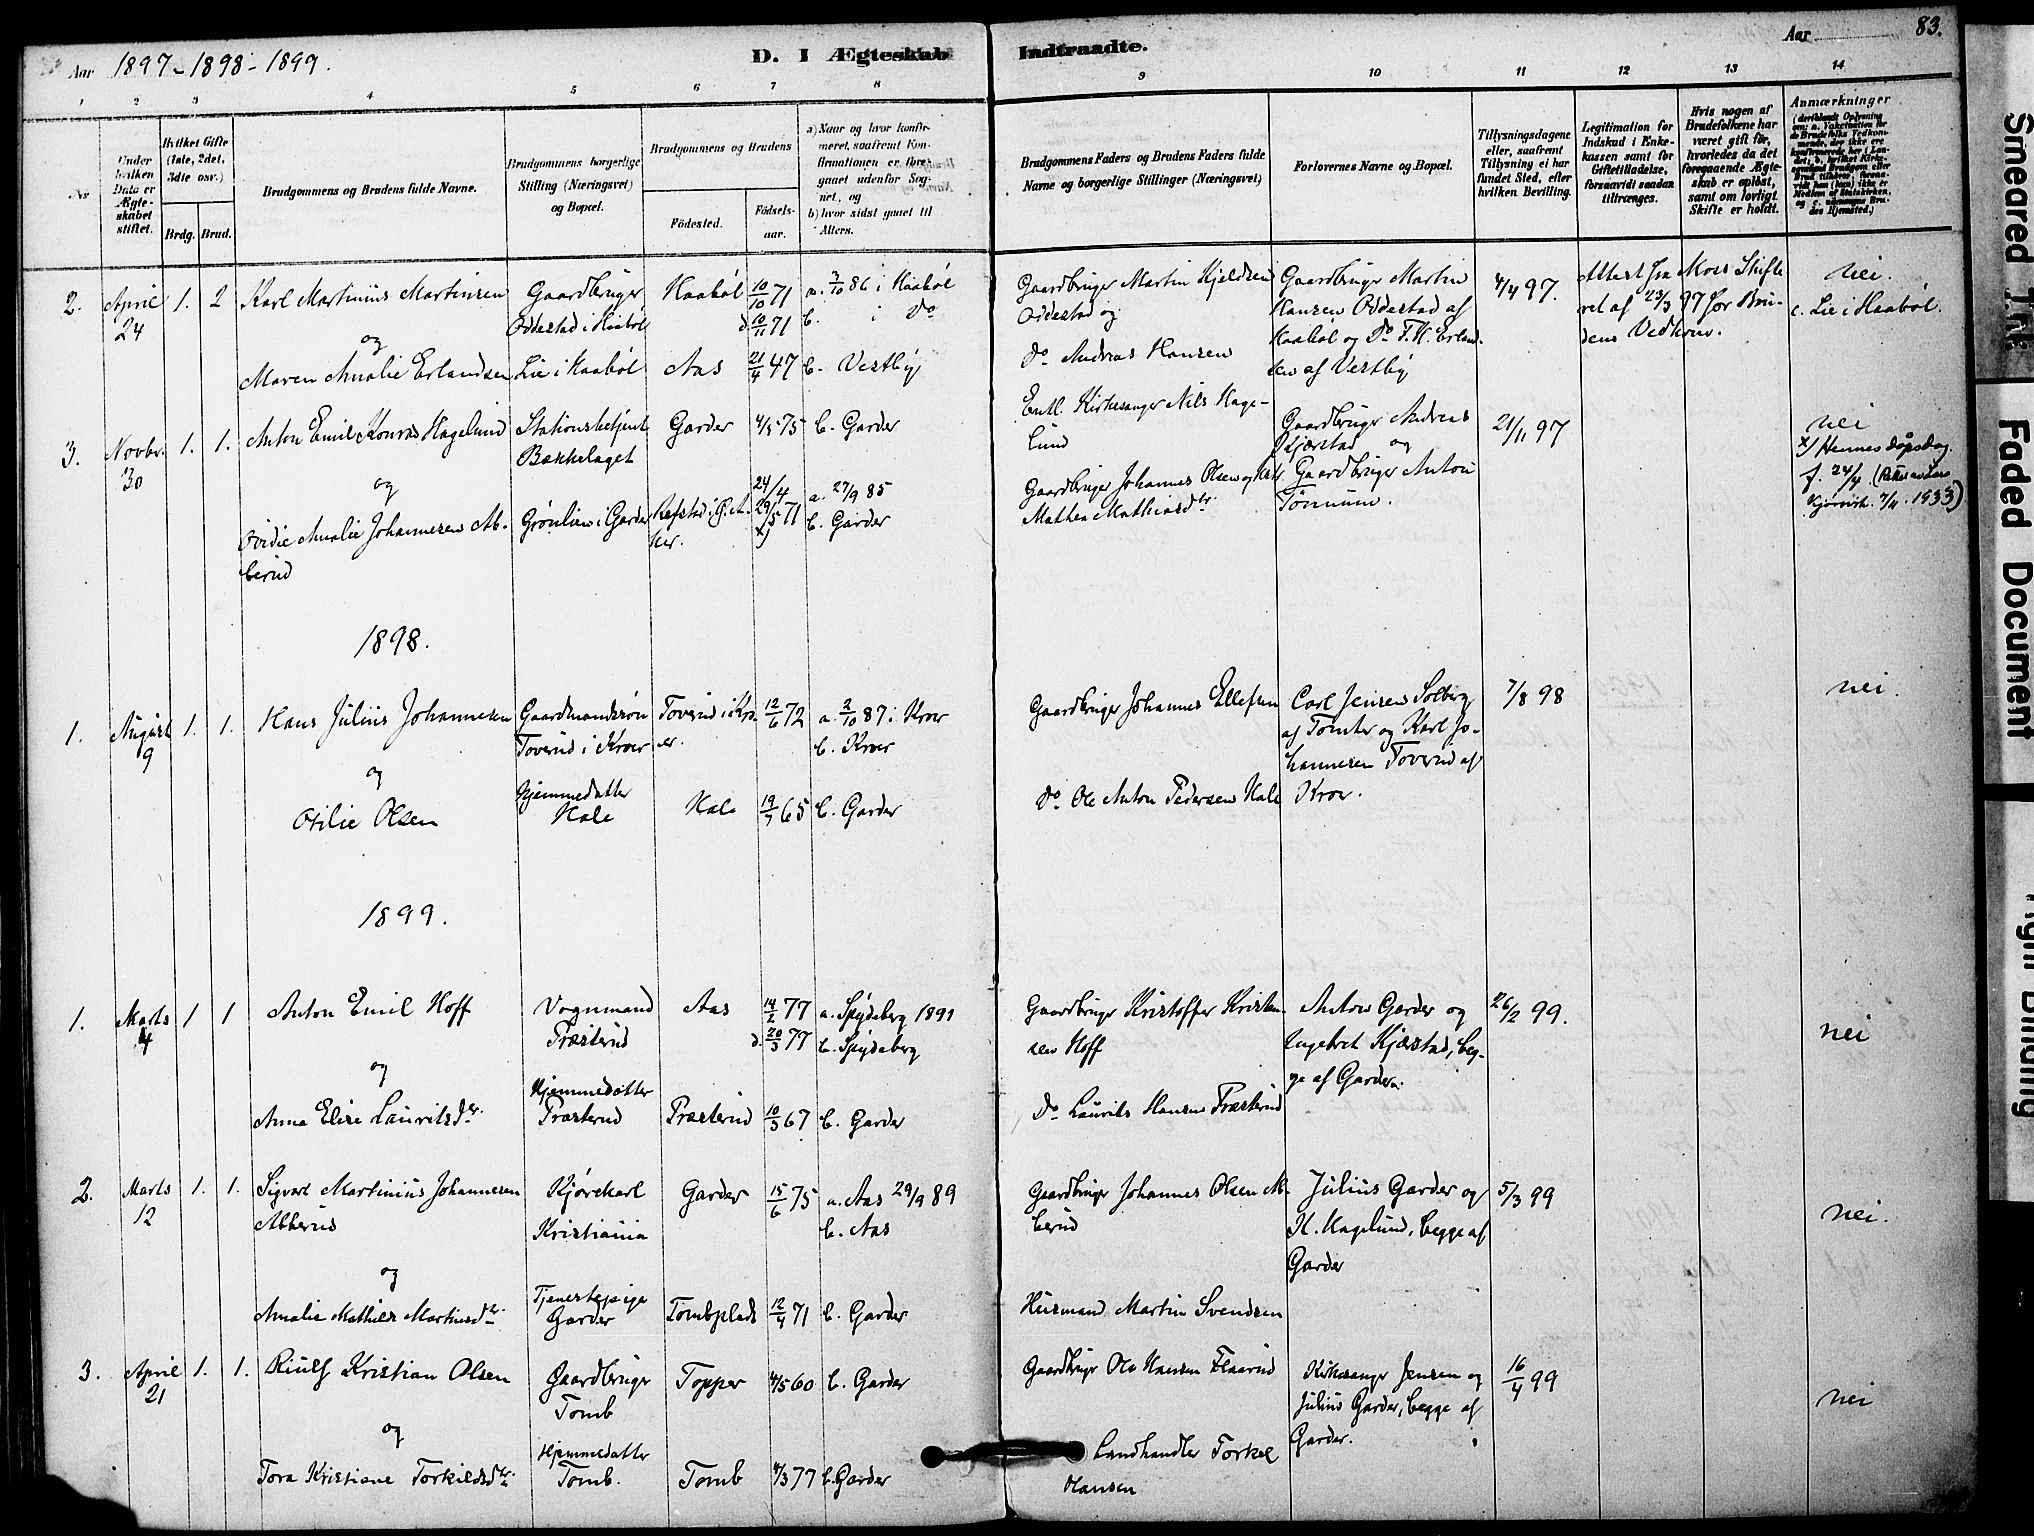 Aar 1897 - 1898 - 1899.
D. I Ægteskab Indtraadte.
Aar 83.
1 2 3 4 5 6 7 8 9 10 11 12 13 14
Nr
Under hvilken Data er Ægteskabet stiftet.
Hvilket Gifte (1ste, 2det, 3dte osv.)
Brdg. Brud.
Brudgommens og Brudens fulde Navne.
Brudgommens borgerlige Stilling (Næringsvei) og Bopæl.
Brudgommens og Brudens
Födested.
Födsels-aar.
a) Naar og hvor konfirmeret, saafremt Konfirmationen er foregaaet udenfor Sognet, og
b) hvor sidst gaaet til Alters.
Brudgommens Faders og Brudens Faders fulde Navne og borgerlige Stillinger (Næringsvei)
Forlovernes Navne og Bopæl.
Tillysningsdagene eller, saafremt Tillysning ei har fundet Sted, efter hvilken Bevilling.
Legitimation for Indskud i Enkekassen samt for Giftetilladelse, forsaavidt saadan tiltrænges.
Hvis nogen af Brudefolkene har været gift för, hvorledes da det foregaaende Ægteskab er oplöst, samt om lovligt Skifte er holdt.
Anmærkninger
2. April 24 1. 2
Karl Martinius Martinsen
og
Maren Amalie Erlandsen
Gaardbruger
Oddestad i Haabøl
Lie i Haabøl
Haabøl
Aas
10/10 71
d. 10/11 71
21/4 47
a. 3/10 86 i Haabøl
b. i Do
b. Vestby
Gaardbruger Martin Kjeldsen
Oddestad og
Do Andreas Hansen
Gaardbruger Martin
Hansen Oddestad af
Haabøl og Do F. H. Erland-
sen af Vestby
4/4 97.
Attest fra Moss Skifte
ret af 23/3 97 for Bru-
dens Vedkom.
Nei.
c. Lie i Haabøl.
3. Novbr. 30 1. 1.
Anton Emil Konrad Hagelund
og
Ovidie Amalie Johannesen Ab-
berud
Stationsbetjent
Bækkelaget
Grønlien i Garder
Garder
4/5 75
24/4
29/5 71
x)
b. Garder
a. 27/9 85
b. Garder
Entl. Kirkesanger Nils Hage-
lund
Gaardbruger Johannes Olsen og
Mathea Mathiasdtr.
Gaardbruger Andreas
Kjærstad og
Gaardbruger Anton
Tømmum.
21/11 97
nei
x) Hennes dåpsdag.
f. 24/4
7/11. 1933)
1898.
1. August 9 1. 1.
Hans Julius Johannesen
og
Otilie Olsen
Gaardmandssøn
Toverud i Kroer
Hjemmedatter
Hale
Toverud i Kro-
er.
Hale
12/6 72
19/7 65
a. 2/10 87 i Kroer
b. Kroer
b. Garder
Gaardbruger Johannes Ellefsen
Do Ole Anton Pedersen Hale
Carl Jensen Solberg
af Tomter og Karl Jo-
hannesen Toverud af
Kroer.
7/8 98
nei.
1899.
1. Marts 4 1 1
Anton Emil Hoff
og
Anna Elise Lauritsdtr.
Vognmand
Præsterud
Hjemmedatter
Præsterud
Aas
Præsterud
14/2 77
d. 20/3 77
10/3 67
a. Spydeberg 1891
b. Spydeberg
b. Garder
Gaardbruger Kristoffer Kristen-
sen Hoff
Do Laurits Hansen Præsterud
Anton Garder og
Engebret Kjærstad, beg-
ge af Garder.
26/2 99.
nei
2. Marts 12 1. 1.
Sigvart Martinius Johannesen
Abberud
og
Amalie Mathilde Martinsdtr.
Kjørekarl
Kristiania
Tjenestepige
Garder
Garder
Tombplads
15/6 75
12/4 71
a. Aas 29/9 89
b. Aas
b. Garder
Gaardbruger Johannes Olsen Ab-
berud
Husmand Martin Svendsen
Julius Garder og
K. Hagelund, begge af
Garder
5/3 99
nei.
3. April 21 1. 1.
Riulf Kristian Olsen
og
Tora Kristiane Torkildsdtr.
Gaardbruger
Tomb
Hjemmedatter
Tomb.
Topper
Tomb
4/5 60
4/3 77
b. Garder
b. Garder
Gaardbruger Ole Hansen Flaarud
Landhandler Torkel
Hansen
Kirkesanger Jensen og
Julius Garder, begge af
Garder.
16/4 99
nei
Smeared Ink
Faded Document